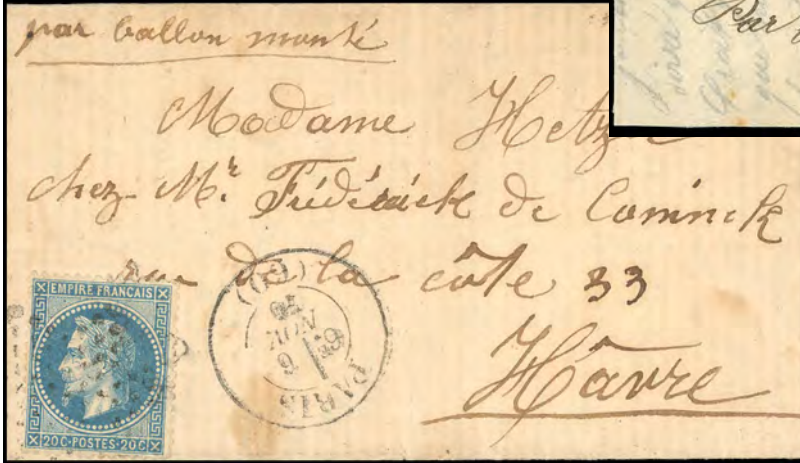 par ballon monté
Madame Hetz
chez Mr. Frédérick de Coninck
rue de la côte 33
Hâvre
EMPIRE FRANCAIS
20C·POSTES·20C
PARIS
(60)
NOV.
Par